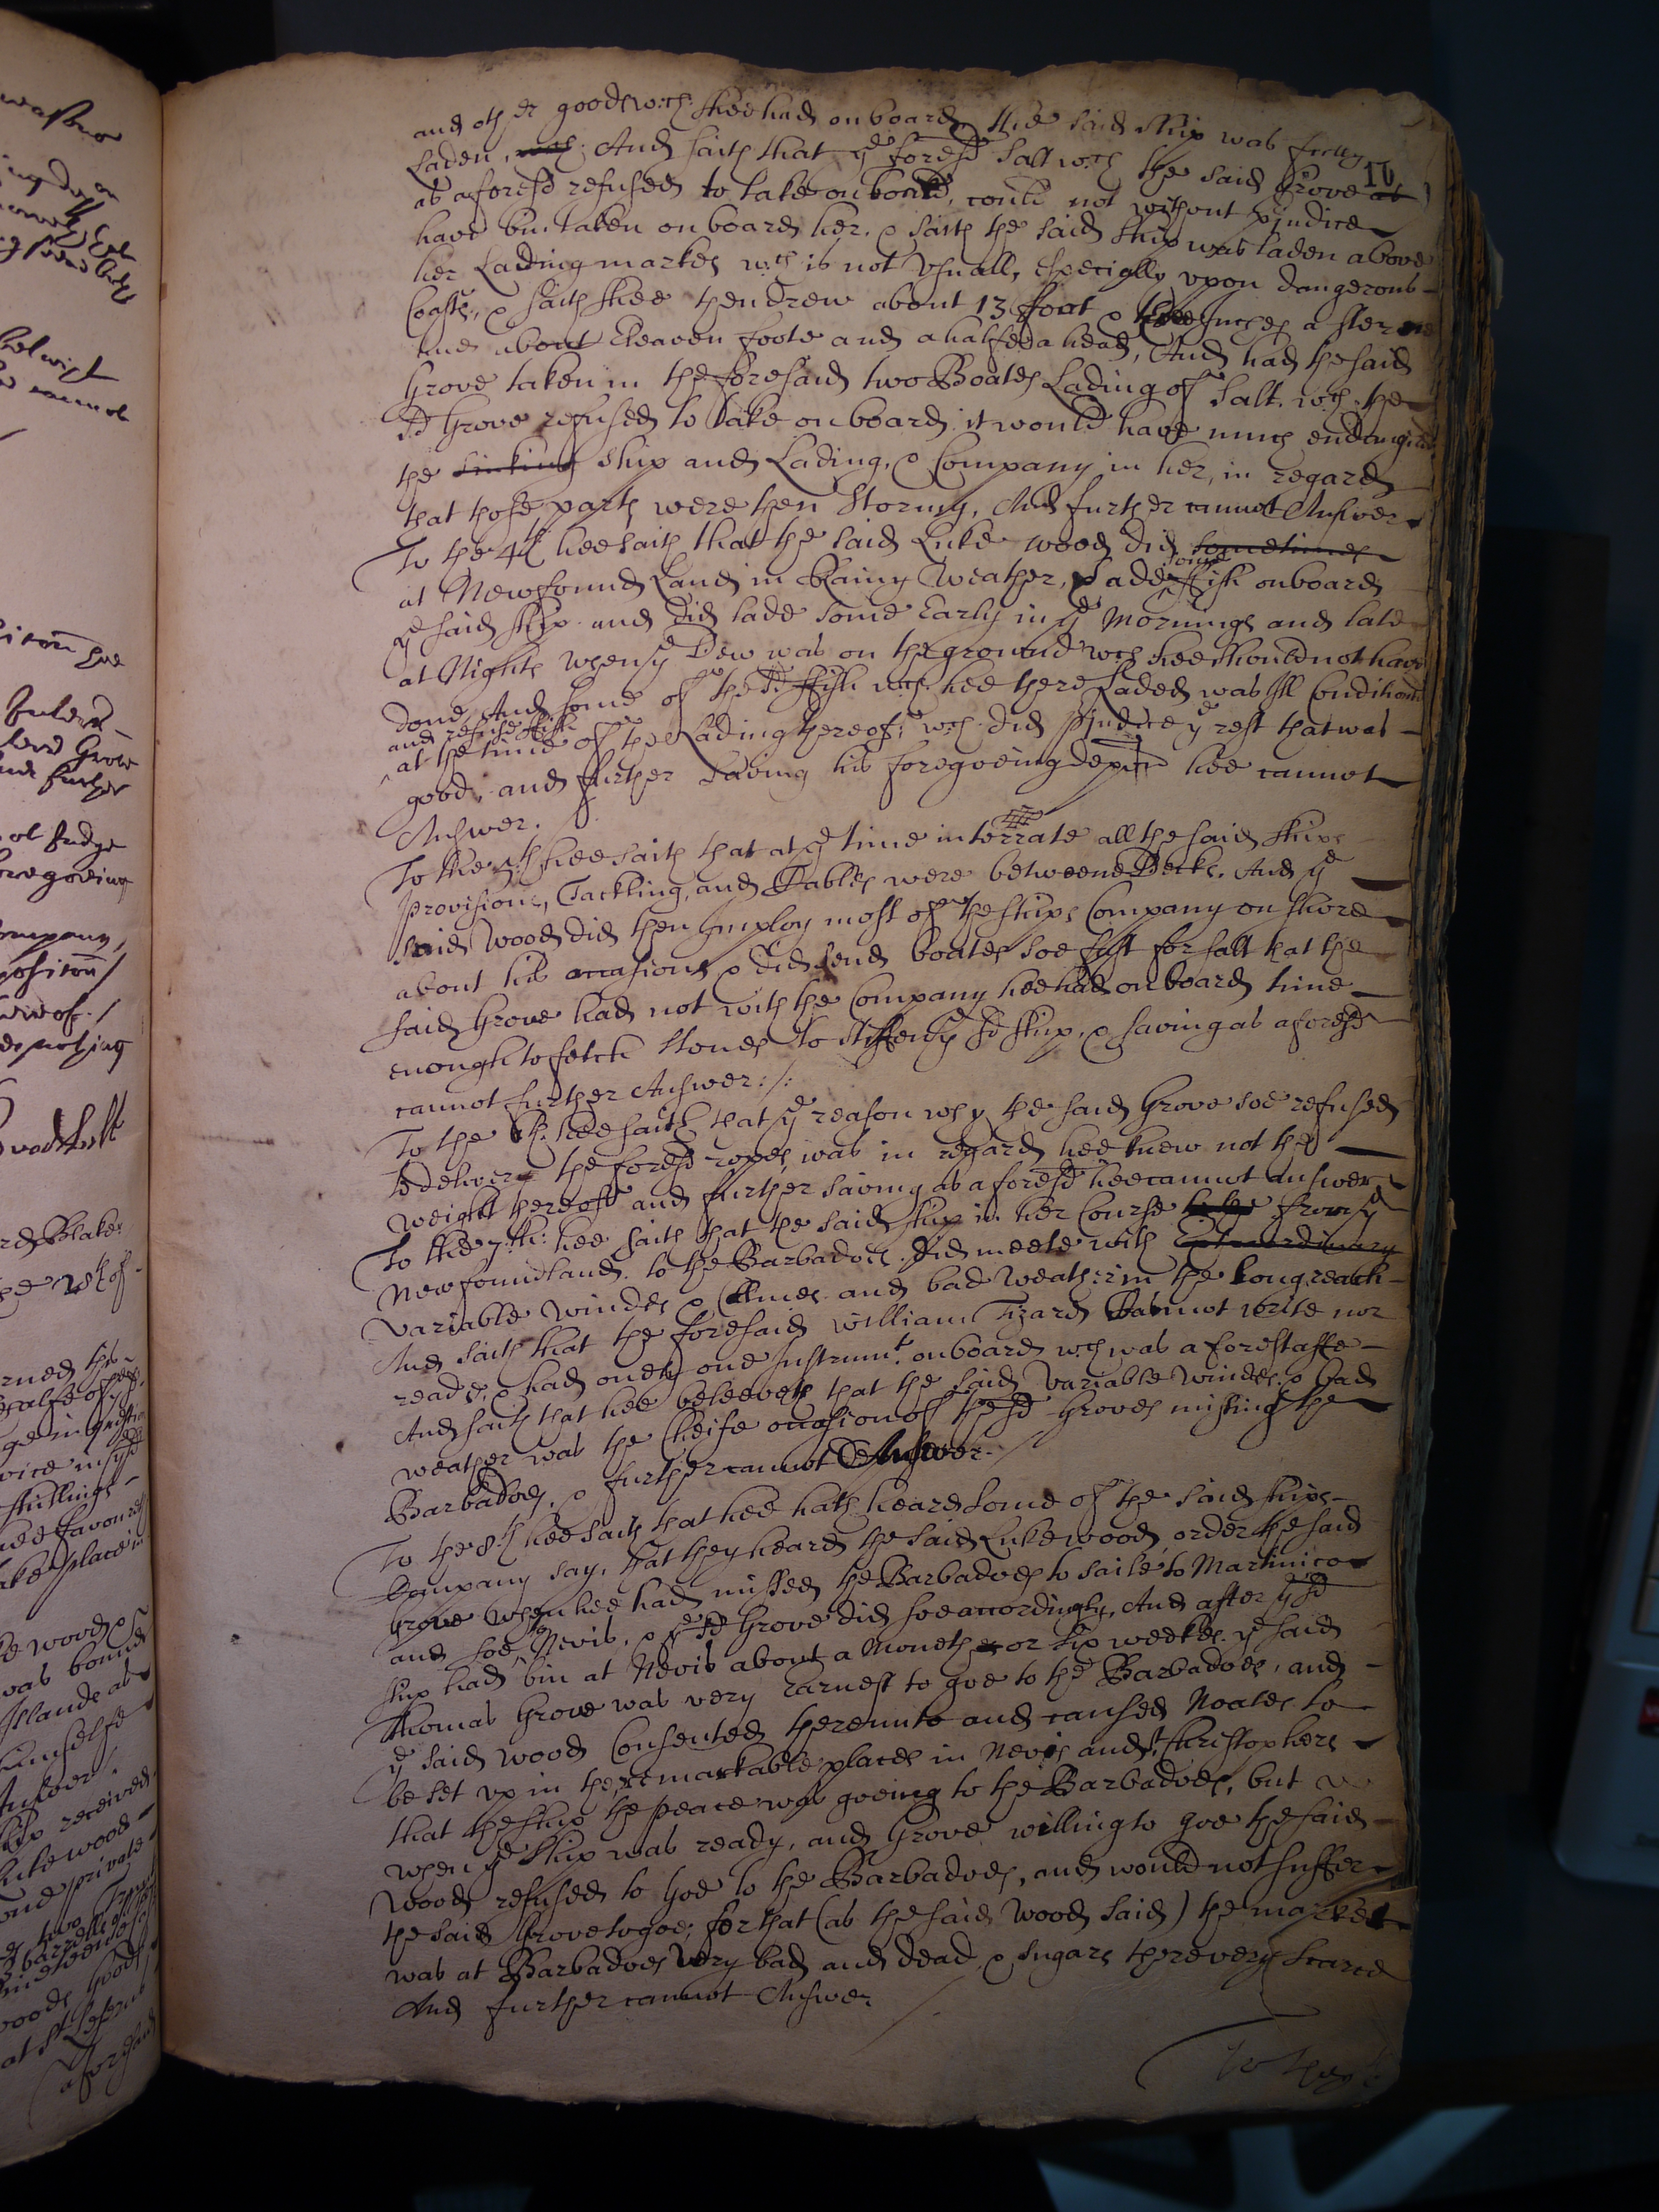 and other goods wch: shee had on board, the said ship was fully
10
Laden, wch: And saith that ye foresd salt wch the said Grove as
as aforesd refused to take on board, could not without prjudice
have bin taken on board her. & saith the said ship was laden above
her Lading markes wch is not Usuall, especially upon dangerous
Coasts, & saith shee then drew about 13 foot & Inches a sterne
and about Eleaven foote and a halfe a head, And had the said
Grove taken in the foresaid two Boates Lading of Salt. wch. the
sd Grove refused to take on board it would have much endangered
the sinking ship and Lading, & Company in her, in regard
that those parts were then stormy, And further cannot Answer
To the 4th hee saith that the said Luke wood did sometimes
at Newfound Land in Rainy Weather, Lade some ffish on board
ye said ship. and did lade some Early in ye Mornings and late
at Nights when ye Dew was on the ground wch hee should not have
done And some of the sd ffish wch. hee there Laded was Ill Conditiond
and refuse ffish
at the time of the Lading thereof, wch. did prjudice ye rest that was
good, and further saving his foregoeing depon hee cannot
Answer.
To the 5th hee saith that at ye time interrate all the said ships
provisions, Tackling, and Cables were betweene Decks. And ye
said Wood did then Imploy most of the ships Company on shore
about his occasions & did send boates soe fast for salt that the
said Grove had not with the Company hee had on board time
enough to fetch stones to stiffen ye sd ship, & saving as aforesd
cannot further Answer:/:
To the 6th: hee saith that ye reason why the said Grove soe refused
to deliver the foresd ropes, was in regard hee knew not the
weight thereoff and further saving as aforesd hee cannot Answer
To the 7:th: hee saith that the said ship in her Course from ye
Newfoundland. to the Barbadoes. did meete with Extraordinary
variable windes & Calmes and bad weather in the Long reach
And saith that the foresaid william Tizard cannot write nor
reade, & had onely one Instrumt. on board wch was a forestaffe
And saith that hee beleeveth that the said variable windes & bad
weather was the Cheife occasion of the sd Groves missing the
Barbadoes, & further cannot Answer./
To the 8th hee saith that hee hath heard some of the said ships
Company say, that they heard the said Luke wood, order the said
Grove when hee had missed the Barbadoes to saile to Martinico
and soe to Nevis, & ye sd Grove did soe accordingly, And after ye sd
ship had bin at Nevis about a Moneth or six weekes ye said
Thomas Grove was very Earnest to goe to the Barbadoes, and
ye said wood Consented thereunto and caused Noates to
be set up in the remarkable places in Nevis and St. Christophers
that the ship the peace was goeing to the Barbadoes, but
when ye ship was ready, and Grove willing to goe the said
Wood refused to goe to the Barbadoes, and would not suffer
the said Grove to goe; for that (as the said Wood said) the market
was at Barbadoes Very bad and dead, & sugars there very scarce
And further cannot Answer
To the 9